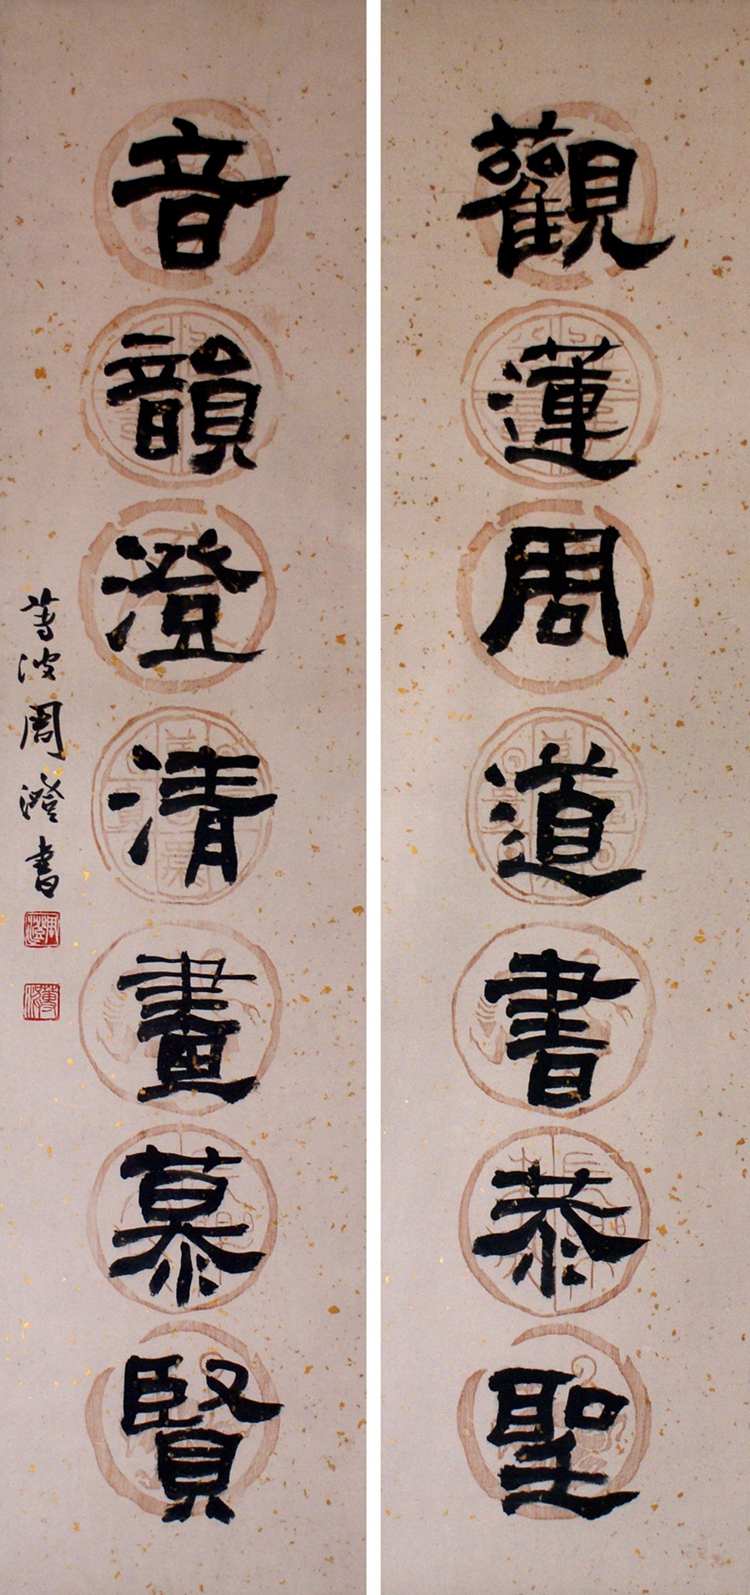 觀蓮周道書恭聖
音韻澄清畫慕賢
蓴波周澄書
周澄